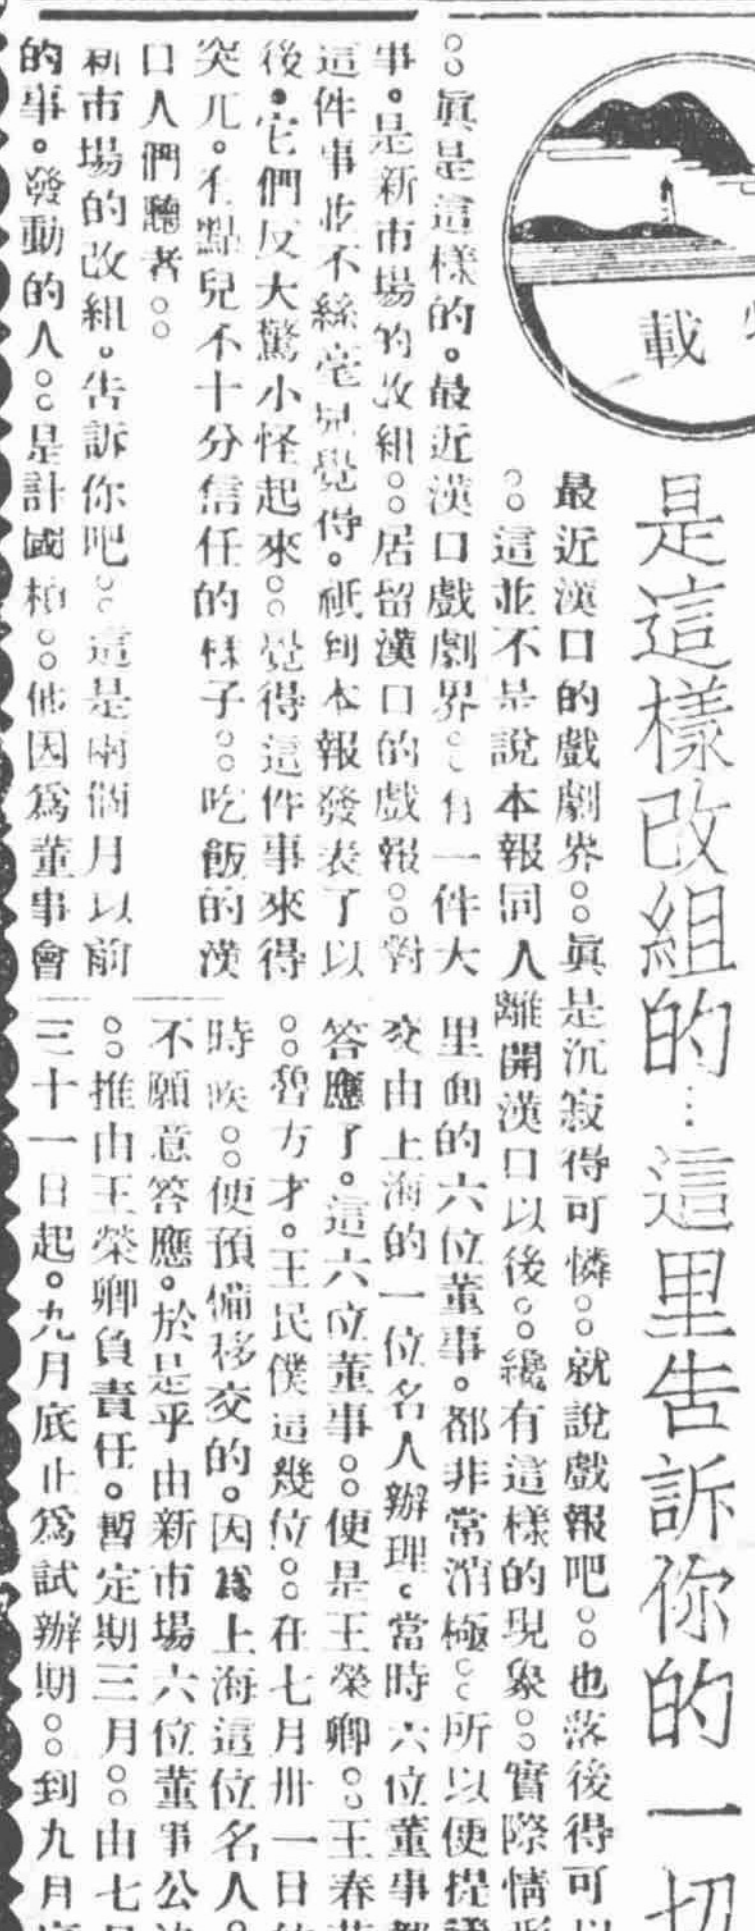 載
是這樣改組的…這里告訴你的一切
最近漢口的戲劇界。。眞是沉寂得可憐。。就說戲報吧。。也落後得可以
。。這並不是說本報同人離開漢口以後。。纔有這樣的現象。。實際情形
。。眞是這樣的。最近漢口戲劇界。。有一件大
事。是新市場的改組。。居留漢口的戲報。。對
這件事並不絲毫兒覺得。祇到本報發表了以
後。它們反大驚小怪起來。。覺得這件事來得
突兀。有點兒不十分信任的樣子。。吃飯的漢
口人們聽者。。
新市場的改組。告訴你吧。。這是兩個月以前
的事。發動的人。。是計國楨。。他因爲董事會
里面的六位董事。都非常消極。。所以便提議
交由上海的一位名人辦理。當時六位董事都
答應了。這六位董事。。便是王榮卿。。王春
。。碧方才。王民僕這幾位。。在七月卅一日的
時候。。便預備移交的。因爲上海這位名人。
不願意答應。於是乎由新市場六位董事公
。。推由王榮卿負責任。暫定期三月。。由七月
三十一日起。九月底止爲試辦期。。到九月底